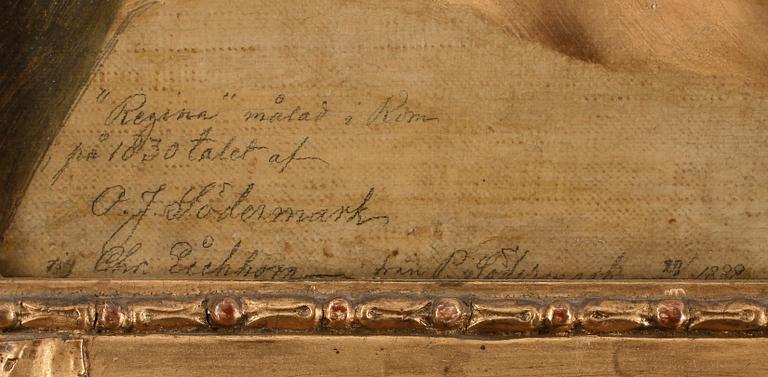 "Regina" målad i Rom
på 1830 talet af
O. J. Södermark
till Chr. Eichhorn från P. Södermark